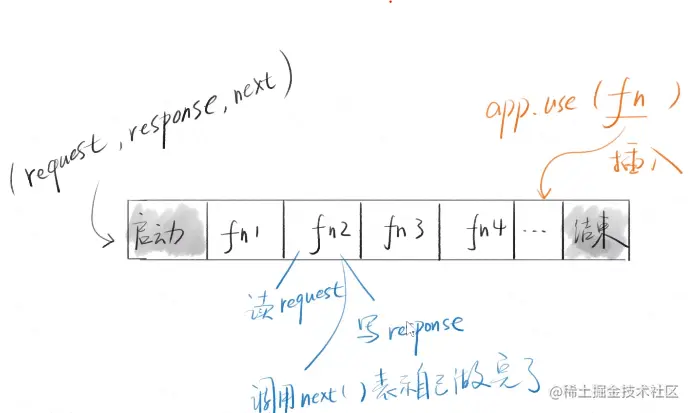 (request, response, next)
app.use(fn)
插入
启动 fn1 fn2 fn3 fn4 ... 结束
读request
写response
调用next()表示自己做完了
@稀土掘金技术社区